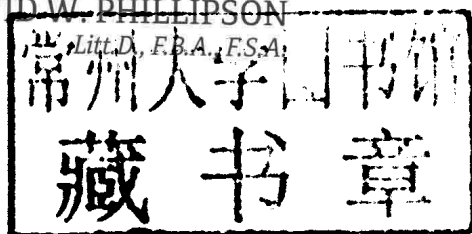 ID W. PHILLIPSON
Litt.D., F.B.A., F.S.A.
常州大学图书馆
藏书章